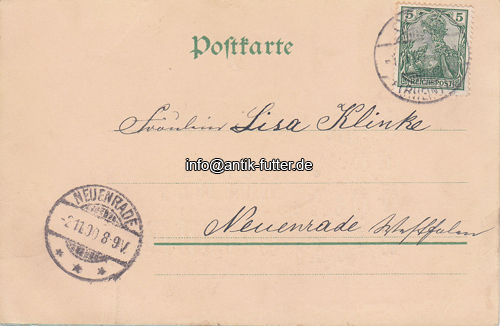 Postkarte
5 5
REICHSPOST
Fräulein Lisa Klinke
info@antik-futter.de
NEUENRADE
-2.11.00.8-9V.
Neuenrade Westfalen